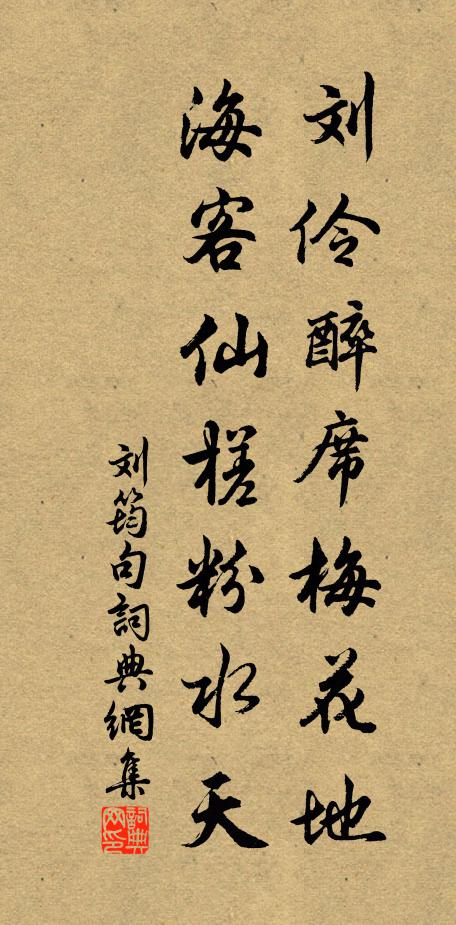 刘伶醉席梅花地
海客仙槎粉水天
刘筠句詞典網集
詞典网印